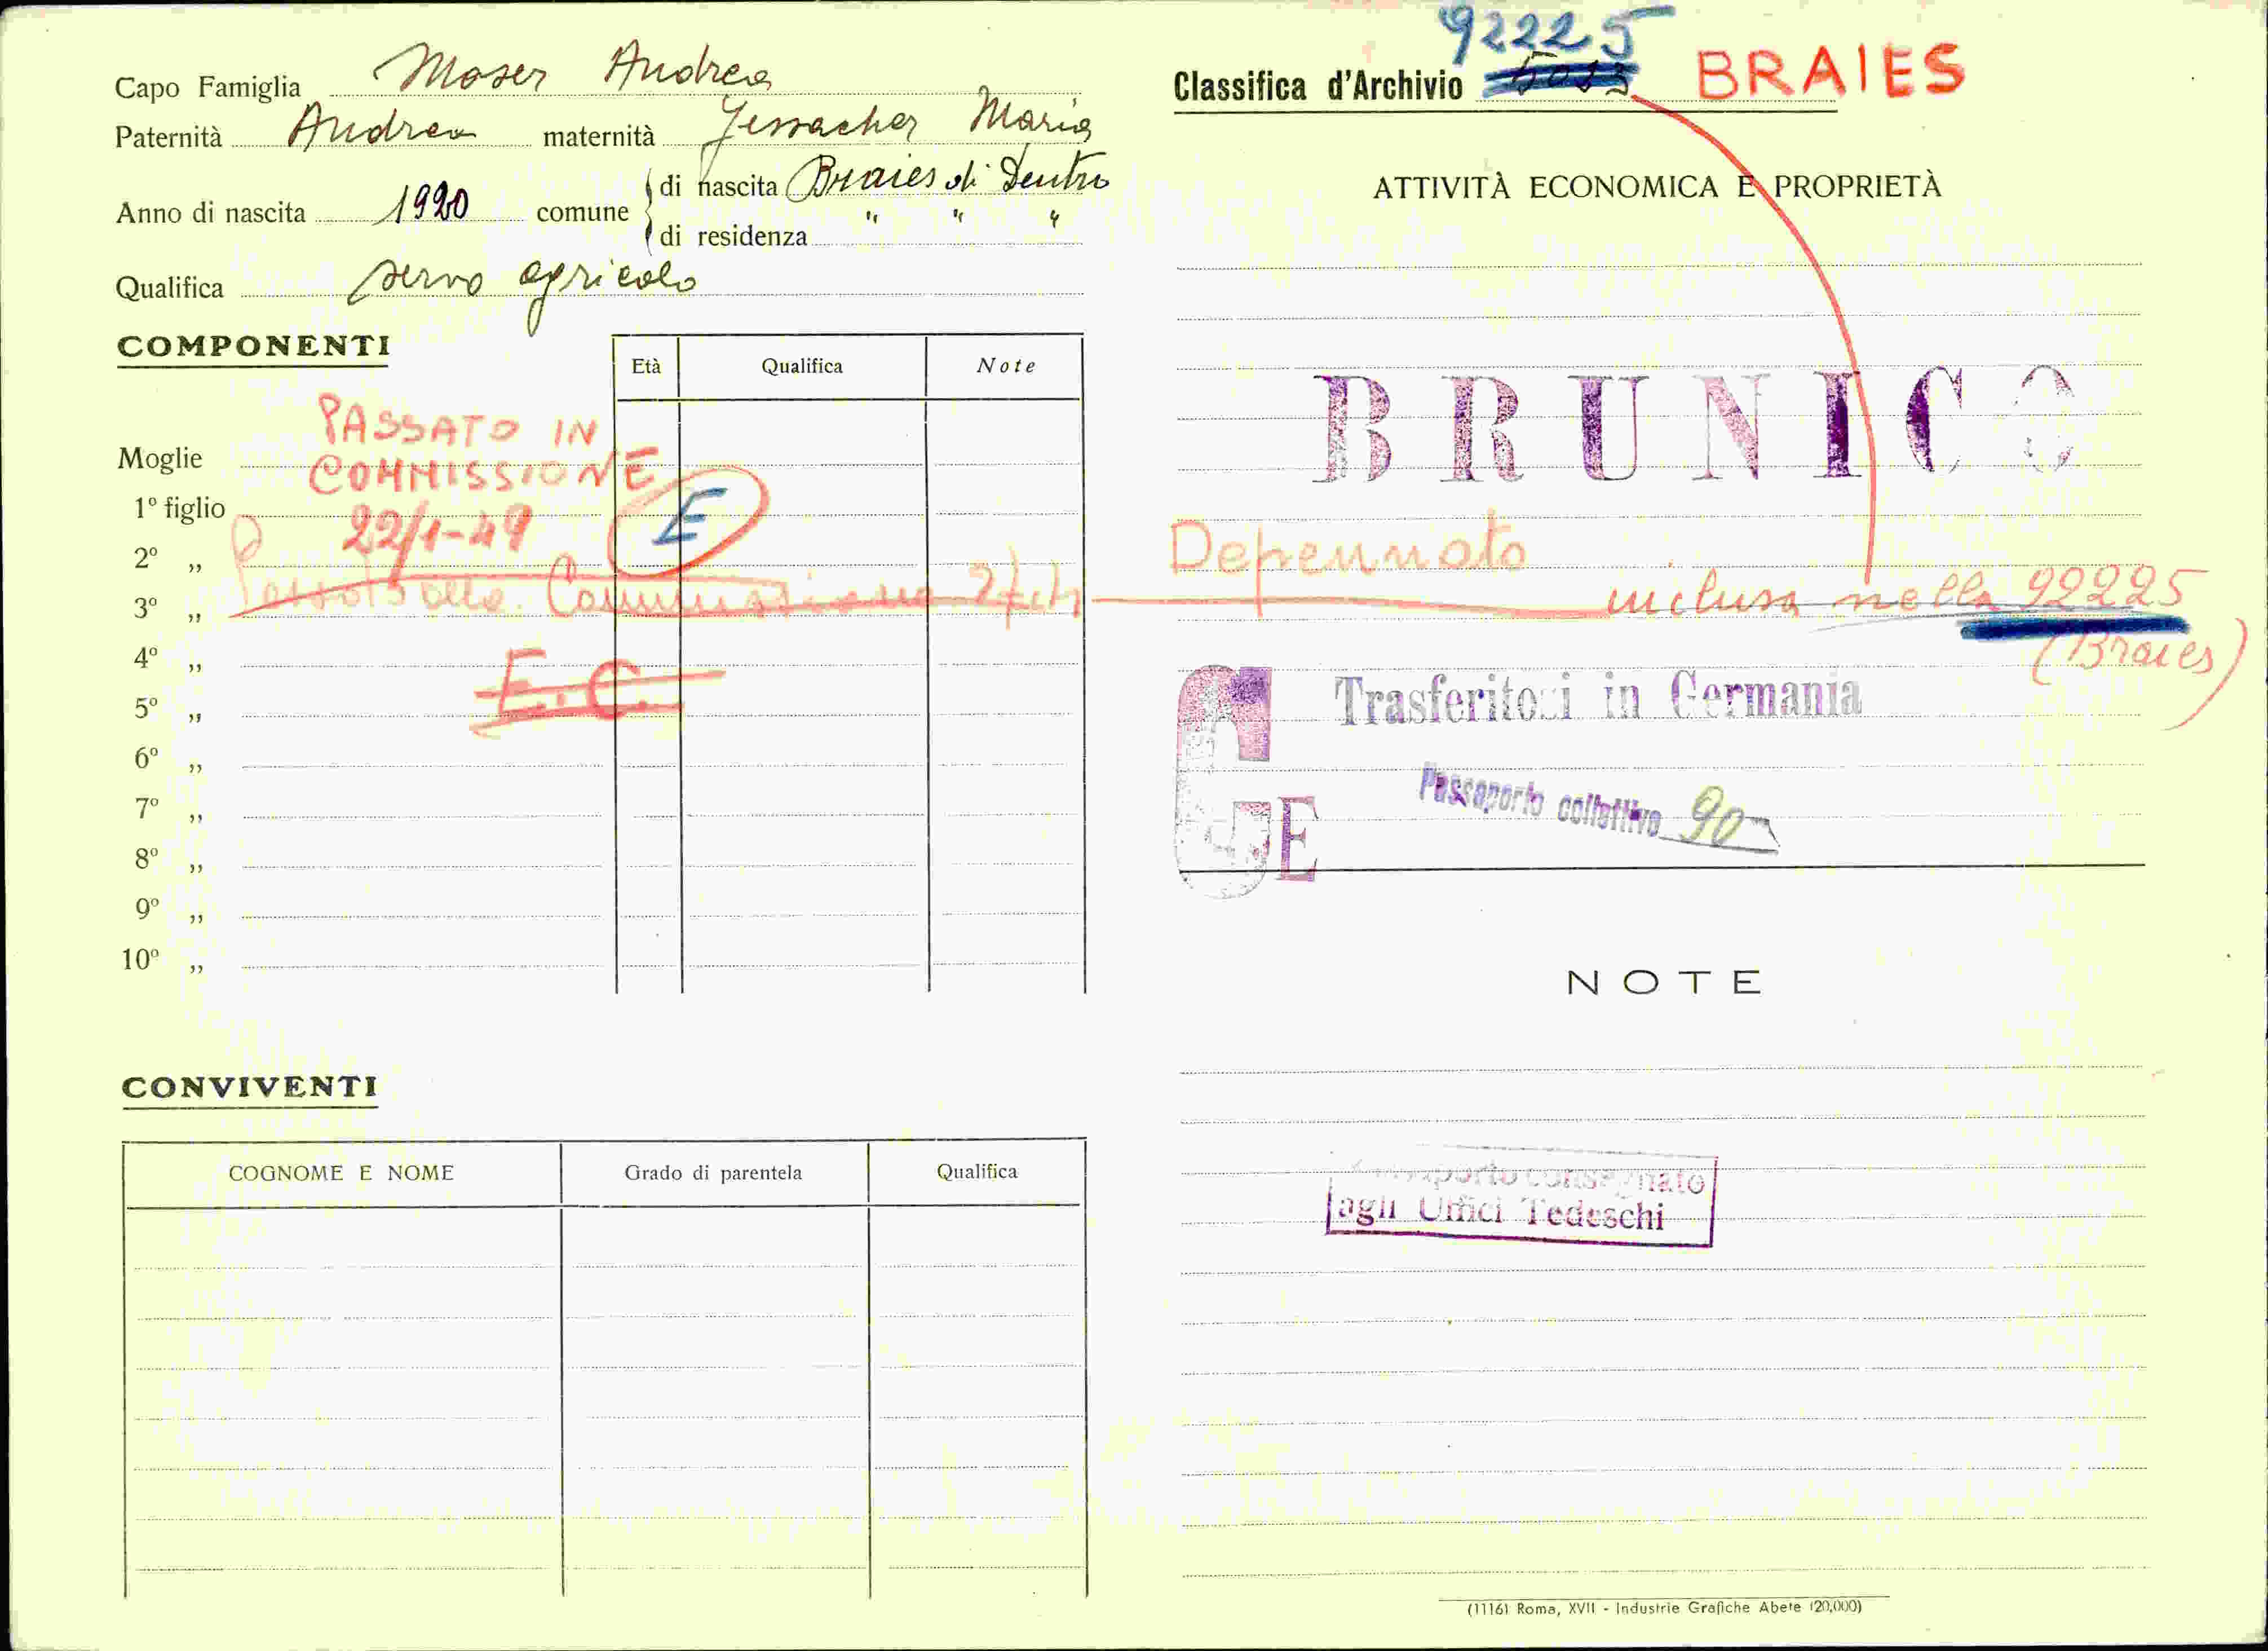 Capo Famiglia Moser Andrea
Paternità Andrea maternità Jessacher Maria
Anno di nascita 1920 comune di nascita Braies di Dentro
di residenza " " "
Qualifica servo agricolo
COMPONENTI
Età Qualifica Note
PASSATO IN
Moglie COMMISSIONE
1º figlio 22/1-49 E
2º „
3º „ Commissione
4º „
5º „ E.C.
6º „
7º „
8º „
9º „
10º „
CONVIVENTI
COGNOME E NOME Grado di parentela Qualifica
92225
Classifica d'Archivio BRAIES
ATTIVITÀ ECONOMICA E PROPRIETÀ
BRUNICO
Depennato
inclusa nella 92225
(Braies)
Trasferitosi in Germania
Passaporto collettivo 90
E
NOTE
Passaporto consegnato
agli Uffici Tedeschi
(1116) Roma, XVII - Industrie Grafiche Abete (20,000)